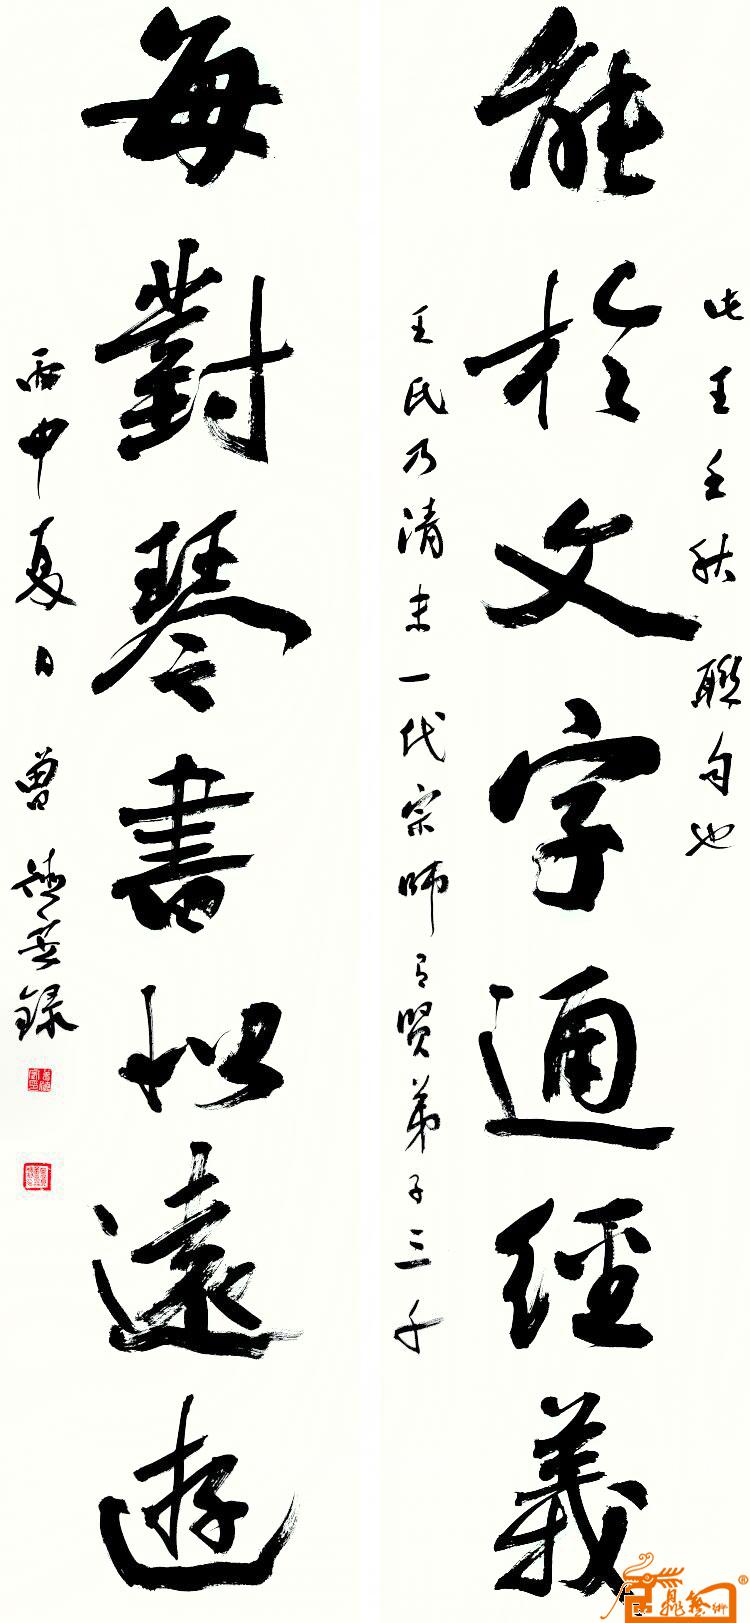 此王壬秋聯句也
能於文字通經義
王氏乃清末一代宗師有賢弟子三千
每對琴書似遠遊
丙申夏日曾德安錄